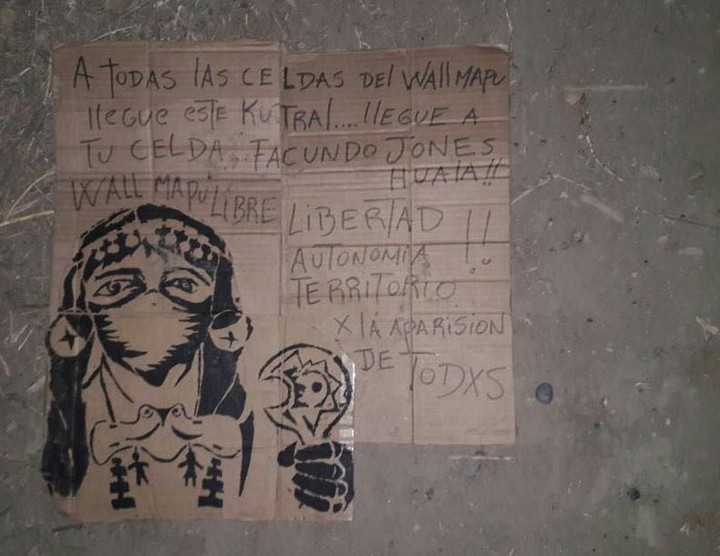 A TODAS lAS CELDAS Del WAllMAPU
llegue este KUTRAl....llEGUE A
TU CELDA, FACUNDO JONES
HUAlA!!
WALL MAPU LIBRE
LIBERTAD !!
AUTONOMIA
TERRITORIO
X lA APARISION
DE TODXS